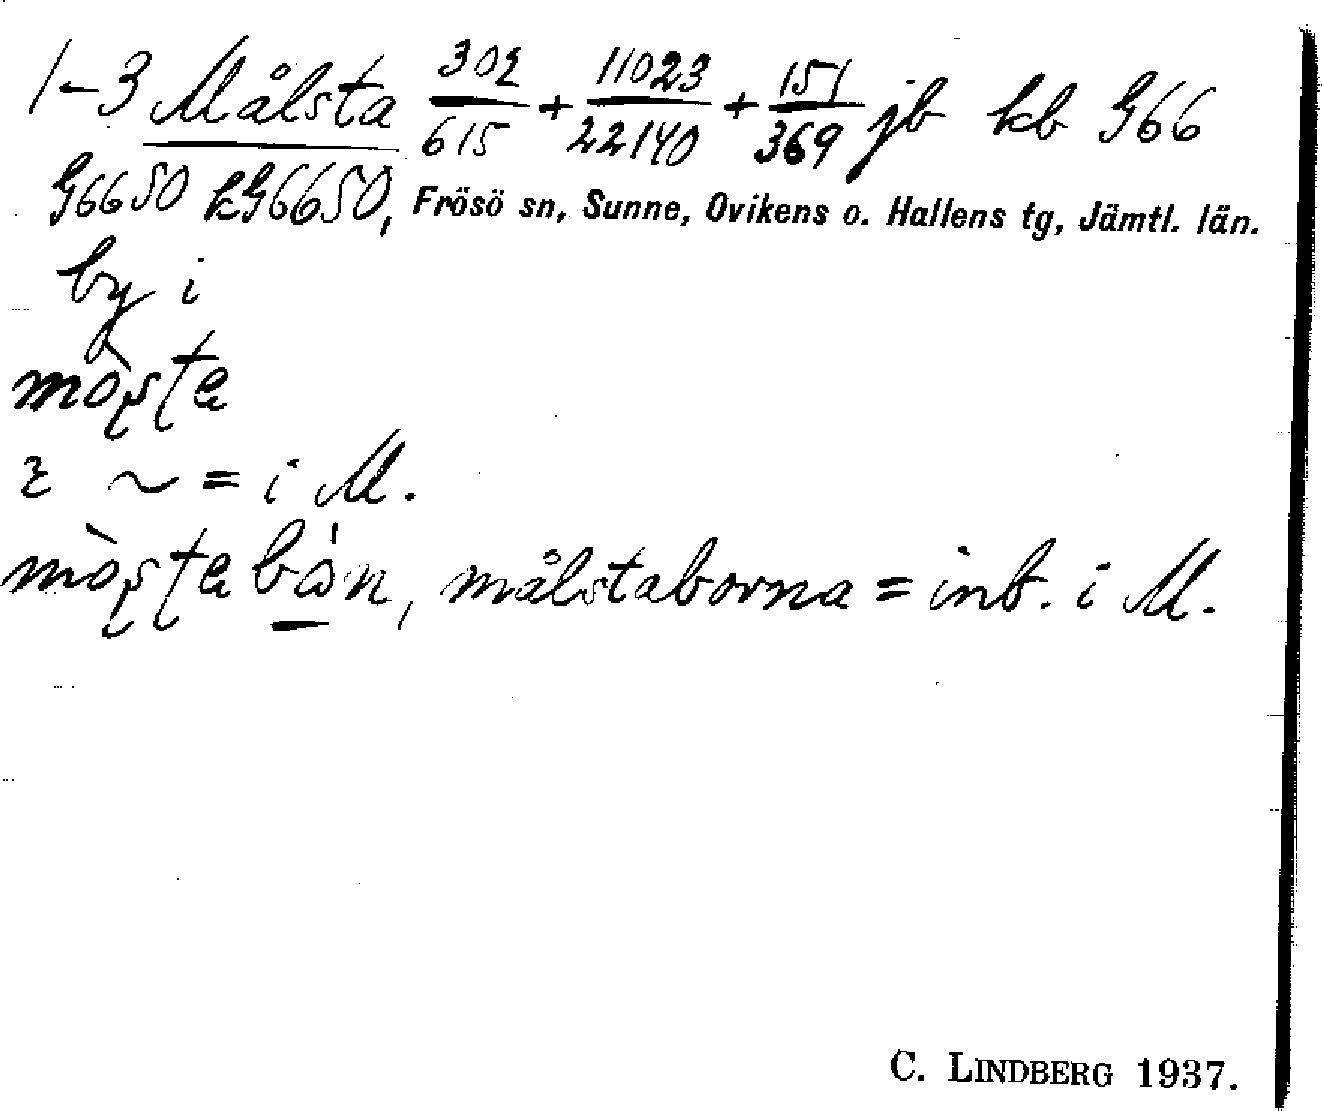 1-3 Målsta 302/615 + 11023/22140 + 151/369 jb kb G66
G6650 kG6650, Frösö sn, Sunne, Ovikens o. Hallens tg, Jämtl. län.
by i
~ = i M.
målstaborna = inb. i M.
C. LINDBERG 1937.